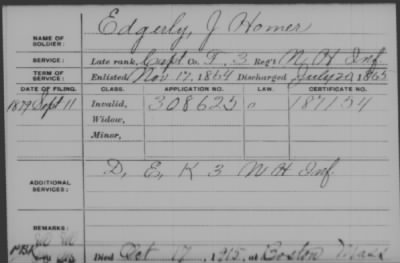 NAME OF SOLDIER: Edgerly, J Homer
SERVICE: Late rank, Capt Co. F. 3. Reg't N H Inf
TERM OF SERVICE: Enlisted Nov 17, 1864 Discharged July 20, 1865
DATE OF FILING. CLASS. APPLICATION NO. LAW. CERTIFICATE NO.
1879 Sept 11 Invalid, 308625 187154
Widow,
Minor,
ADDITIONAL SERVICES: D, E, K 3 N H Inf
REMARKS:
Died Oct 17, 1915, at Boston Mass